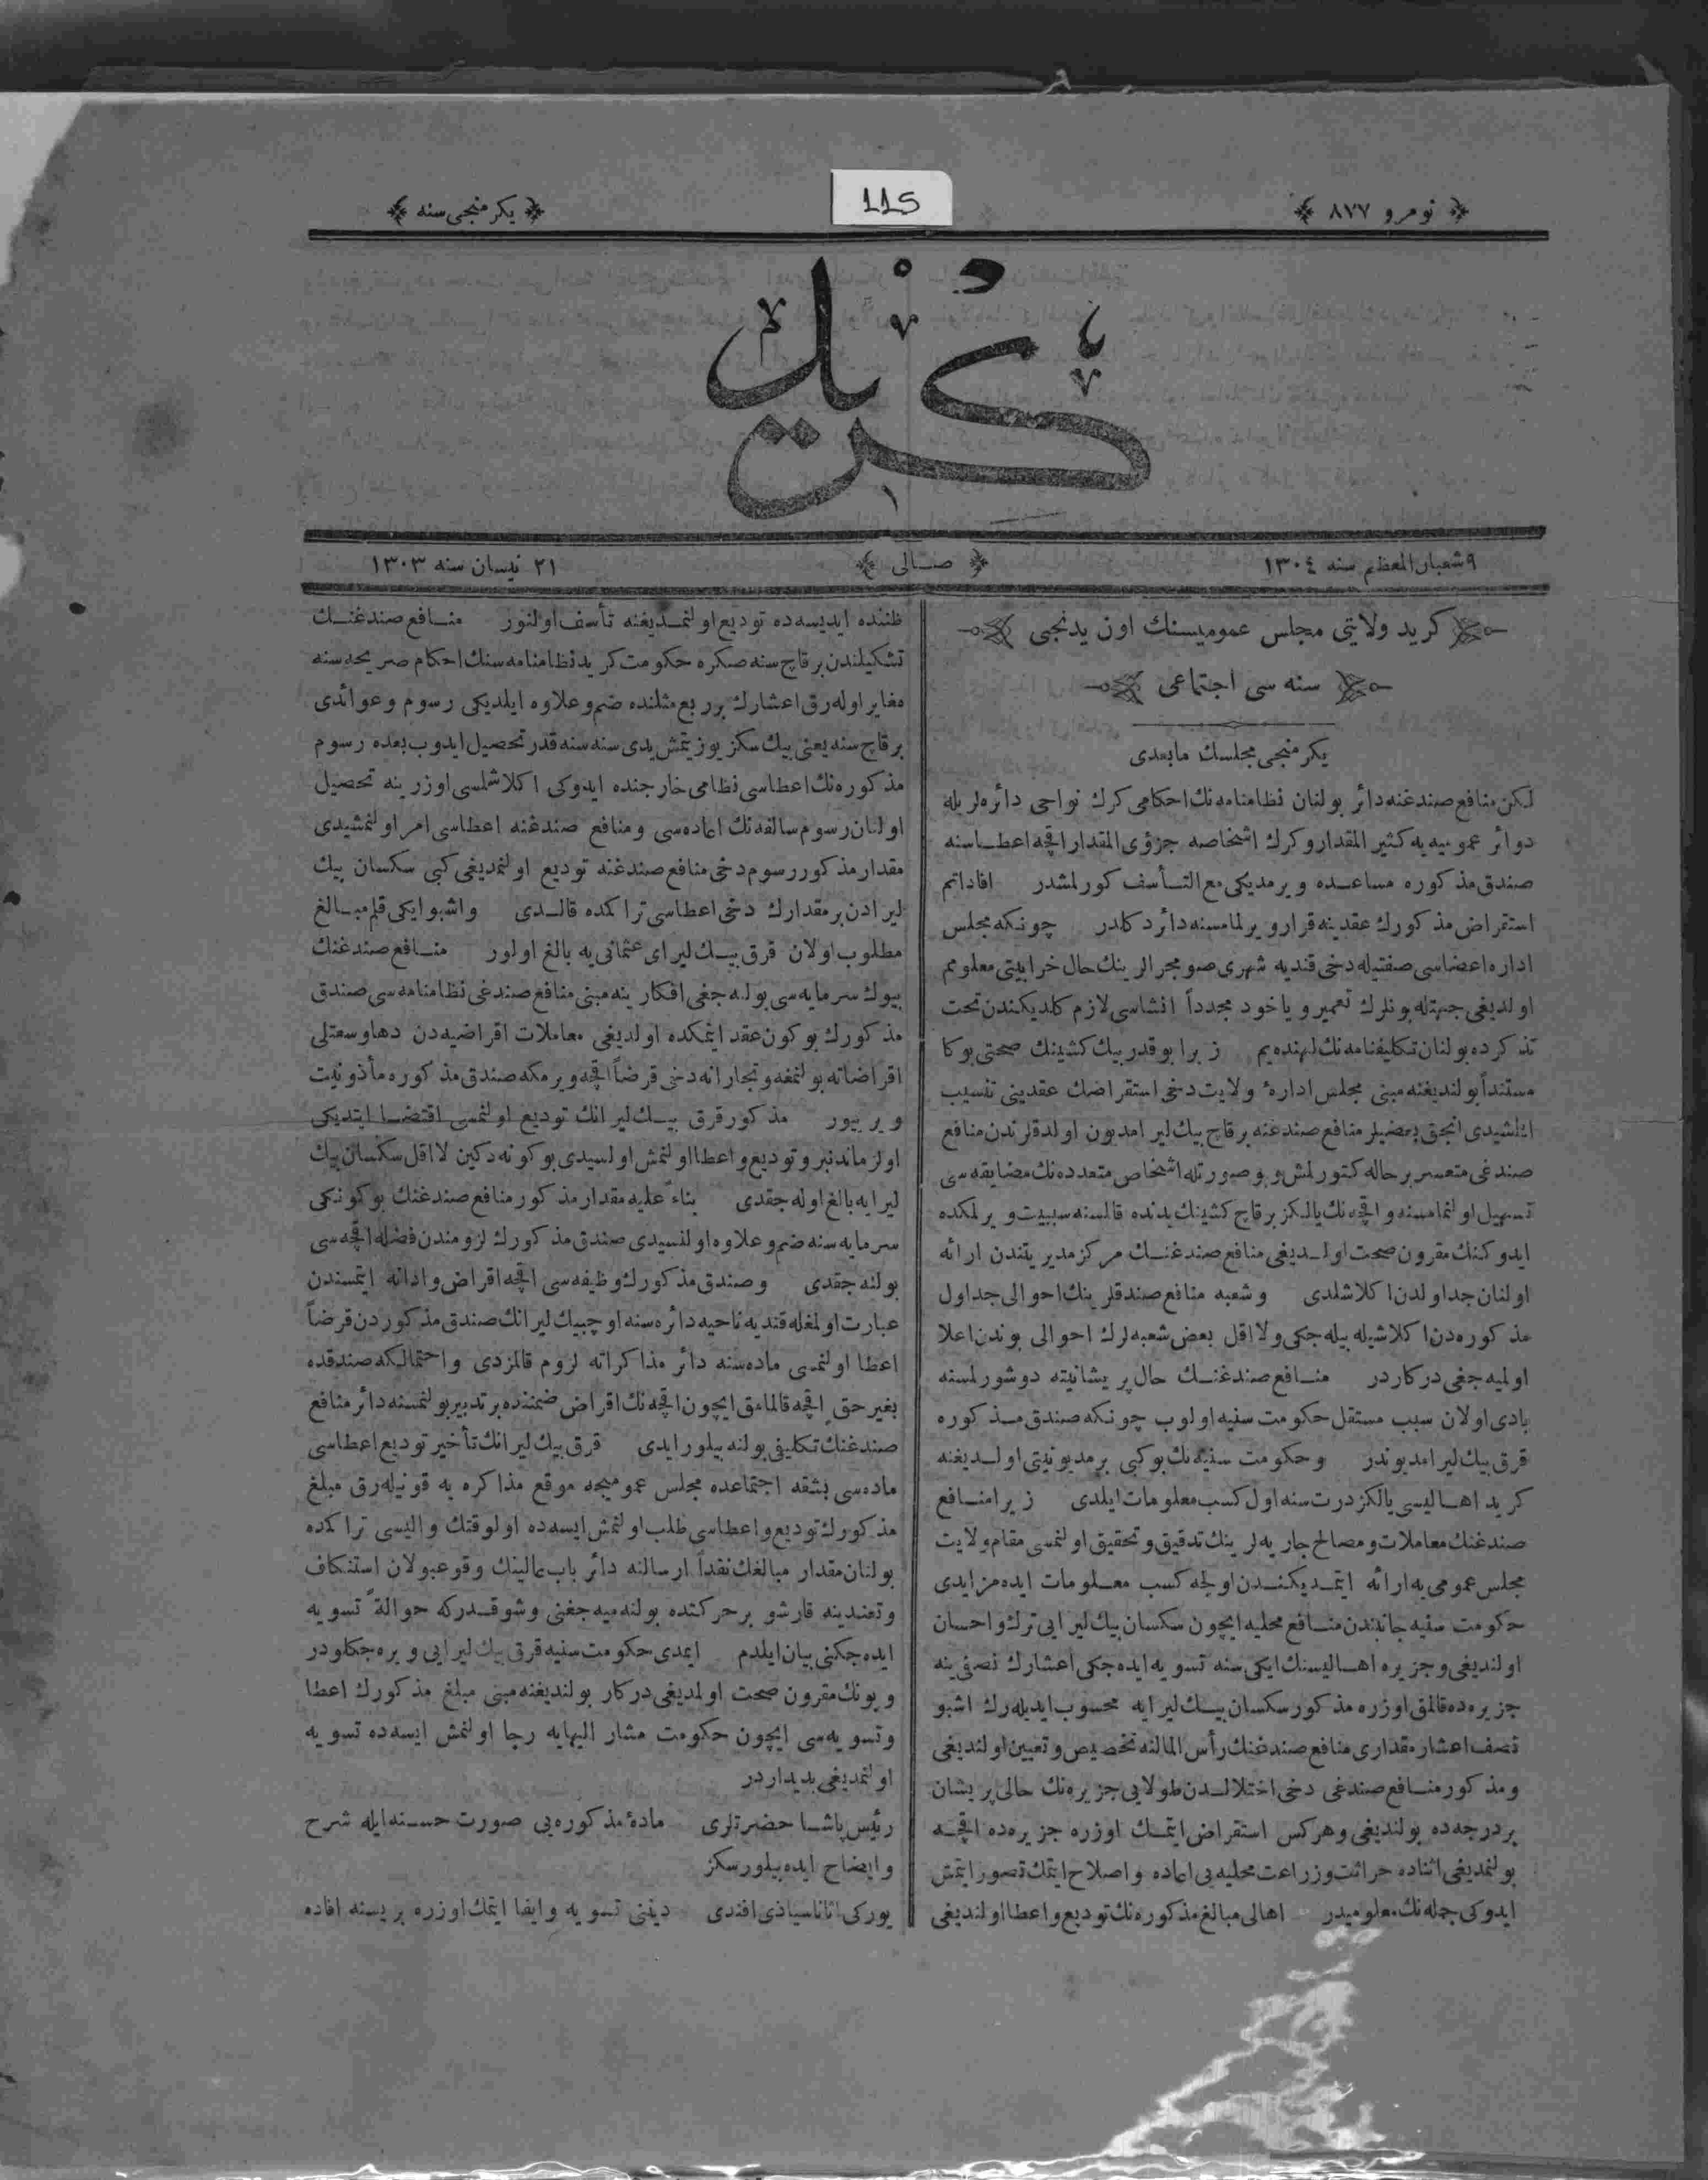 نومرو ٨٧٧
115
يكرمنجى سنه
كريد
٩ شعبان المعظم سنه ١٣٠٤
صالى
٢١ نيسان سنه ١٣٠٣
كريد ولايتى مجلس عموميسنك اون يدنجى
سنه سى اجتماعى
يكرمنجى مجلسك مابعدى
لكن منافع صندغنه دائر بولنان نظامنامه نك احكامى كرك نواحى دائره لريله
دوائر عموميه يه كثير المقدار و كرك اشخاصه جزؤى المقدار اقچه اعطاسنه
صندق مذكوره مساعده ويرمديكى مع التأسف كورلمشدر افاداتم
استقراض مذكورك عقدينه قرار ويرلمامسنه دائر دكلدر چونكه مجلس
اداره اعضاسى صفتيله دخى قنديه شهرى صو مجرالرينك حال خرابيتى معلومم
اولديغى جهتله بونلرك تعمير و ياخود مجدداً انشاسى لازم كلديكندن تحت
تذكرده بولنان تكليفنامه نك لهنده يم زيرا بو قدر بيك كشينك صحتى بوكا
مستنداً بولنديغنه مبنى مجلس ادارهٔ ولايت دخى استقراضك عقدينى تنسيب
ايلشيدى انجق بعضيلر منافع صندغنه برقاچ بيك ليرا مديون اولدقلرندن منافع
صندغى متعسر برحاله كتورلمش و بو صورتله اشخاص متعدده نك مضايقه سى
تسهيل اولنمامسنه و اقچه نك يالكز برقاچ كشينك يدنده قالمسنه سببيت ويرلمكده
ايدوكنك مقرون صحت اولديغى منافع صندغنك مركز مديريتندن ارائه
اولنان جداولدن اكلاشلدى وشعبه منافع صندقلرينك احوالى جداول
مذكوره دن اكلاشيله بيله جكى ولا اقل بعض شعبه لرك احوالى بوندن اعلا
اولميه جغى دركاردر منافع صندغنك حال پريشانيته دوشورلمسنه
بادى اولان سبب مستقل حكومت سنيه اولوب چونكه صندق مذكوره
قرق بيك ليرا مديوندر وحكومت سنيه نك بوكبى برمديونيتى اولديغنه
كريد اهاليسى يالكز درت سنه اول كسب معلومات ايلدى زيرا منافع
صندغنك معاملات و مصالح جاريه لرينك تدقيق و تحقيق اولنمسى مقام ولايت
مجلس عمومى يه ارائه ايتمديكندن اولجه كسب معلومات ايده مز ايدى
حكومت سنيه جانبندن منافع محليه ايچون سكسان بيك ليرايى ترك و احسان
اولنديغى و جزيره اهاليسنك ايكى سنه تسويه ايده جكى اعشارك نصفى ينه
جزيره ده قالمق اوزره مذكور سكسان بيك ليرايه محسوب ايديله رك اشبو
نصف اعشار مقدارى منافع صندغنك رأس المالنه تخصيص و تعيين اولنديغى
ومذكور منافع صندغى دخى اختلالدن طولايى جزيره نك حالى پريشان
بر درجه ده بولنديغى وهركس استقراض ايتمك اوزره جزيره ده اقچه
بولنمديغى اثناده حراثت و زراعت محليه يى اعاده و اصلاح ايتمك تصور ايتمش
ايدوكى جمله نك معلوميدر اهالى مبالغ مذكوره نك توديع و اعطا اولنديغى
ظننده ايديسه ده توديع اولنمديغنه تأسف اولنور منافع صندغنك
تشكيلندن برقاچ سنه صكره حكومت كريد نظامنامه سنك احكام صريحه سنه
مغاير اوله رق اعشارك بر ربع مثلنده ضم و علاوه ايلديكى رسوم و عوائدى
برقاچ سنه يعنى بيك سكز يوز يتمش يدى سنه سنه قدر تحصيل ايدوب بعده رسوم
مذكوره نك اعطاسى نظامى خارجنده ايدوكى اكلاشلمسى اوزرينه تحصيل
اولنان رسوم سالفه نك اعاده سى و منافع صندغنه اعطاسى امر اولنمشيدى
مقدار مذكور رسوم دخى منافع صندغنه توديع اولنمديغى كبى سكسان بيك
ليرادن بر مقدارك دخى اعطاسى تراكمده قالدى واشبو ايكى قلم مبالغ
مطلوب اولان قرق بيك ليراى عثمانى يه بالغ اولور منافع صندغنك
بيوك سرمايه سى بولنه جغى افكارينه مبنى منافع صندغى نظامنامه سى صندق
مذكورك بوكون عقد ايتمكده اولديغى معاملات اقراضيه دن دها وسعتلى
اقراضاته بولنمغه و تجارانه دخى قرضاً اقچه ويرمكه صندق مذكوره مأذونيت
ويريور مذكور قرق بيك ليرانك توديع اولنمسى اقتضا ايتديكى
اولزماندنبرو توديع و اعطا اولنمش اولسيدى بوكونه دكين لا اقل سكسان بيك
ليرايه بالغ اوله جقدى بناءً عليه مقدار مذكور منافع صندغنك بوكونكى
سرمايه سنه ضم و علاوه اولنسيدى صندق مذكورك لزومندن فضله اقچه سى
بولنه جقدى وصندق مذكورك وظيفه سى اقچه اقراض و ادانه ايتمسندن
عبارت اولمغله قنديه ناحيه دائره سنه اوچ بيك ليرانك صندق مذكوردن قرضاً
اعطا اولنمسى ماده سنه دائر مذاكراته لزوم قالمزدى واحتمالكه صندقده
بغير حق اقچه قالمامق ايچون اقچه نك اقراض ضمننده بر تدبير بولنمسنه دائر منافع
صندغنك تكليفى بولنه بيلور ايدى قرق بيك ليرانك تأخير توديع اعطاسى
ماده سى بشقه اجتماعده مجلس عموميجه موقع مذاكره يه قونيله رق مبلغ
مذكورك توديع و اعطاسى طلب اولنمش ايسه ده اولوقتك واليسى تراكمده
بولنان مقدار مبالغك نقداً ارسالنه دائر باب عالينك وقوعبولان استنكاف
وتعندينه قارشو بر حركتده بولنه ميه جغنى وشوقدركه حوالةً تسويه
ايده جكنى بيان ايلدم ايمدى حكومت سنيه قرق بيك ليرايى ويره جكلودر
وبونك مقرون صحت اولمديغى دركار بولنديغنه مبنى مبلغ مذكورك اعطا
وتسويه سى ايچون حكومت مشار اليهايه رجا اولنمش ايسه ده تسويه
اولنمديغى بديداردر
رئيس پاشا حضرتلرى مادهٔ مذكوره يى صورت حسنه ايله شرح
وايضاح ايده بيلورسكز
يوركى اتاناسياذى افندى دينى تسويه و ايفا ايتمك اوزره بريسنه افاده